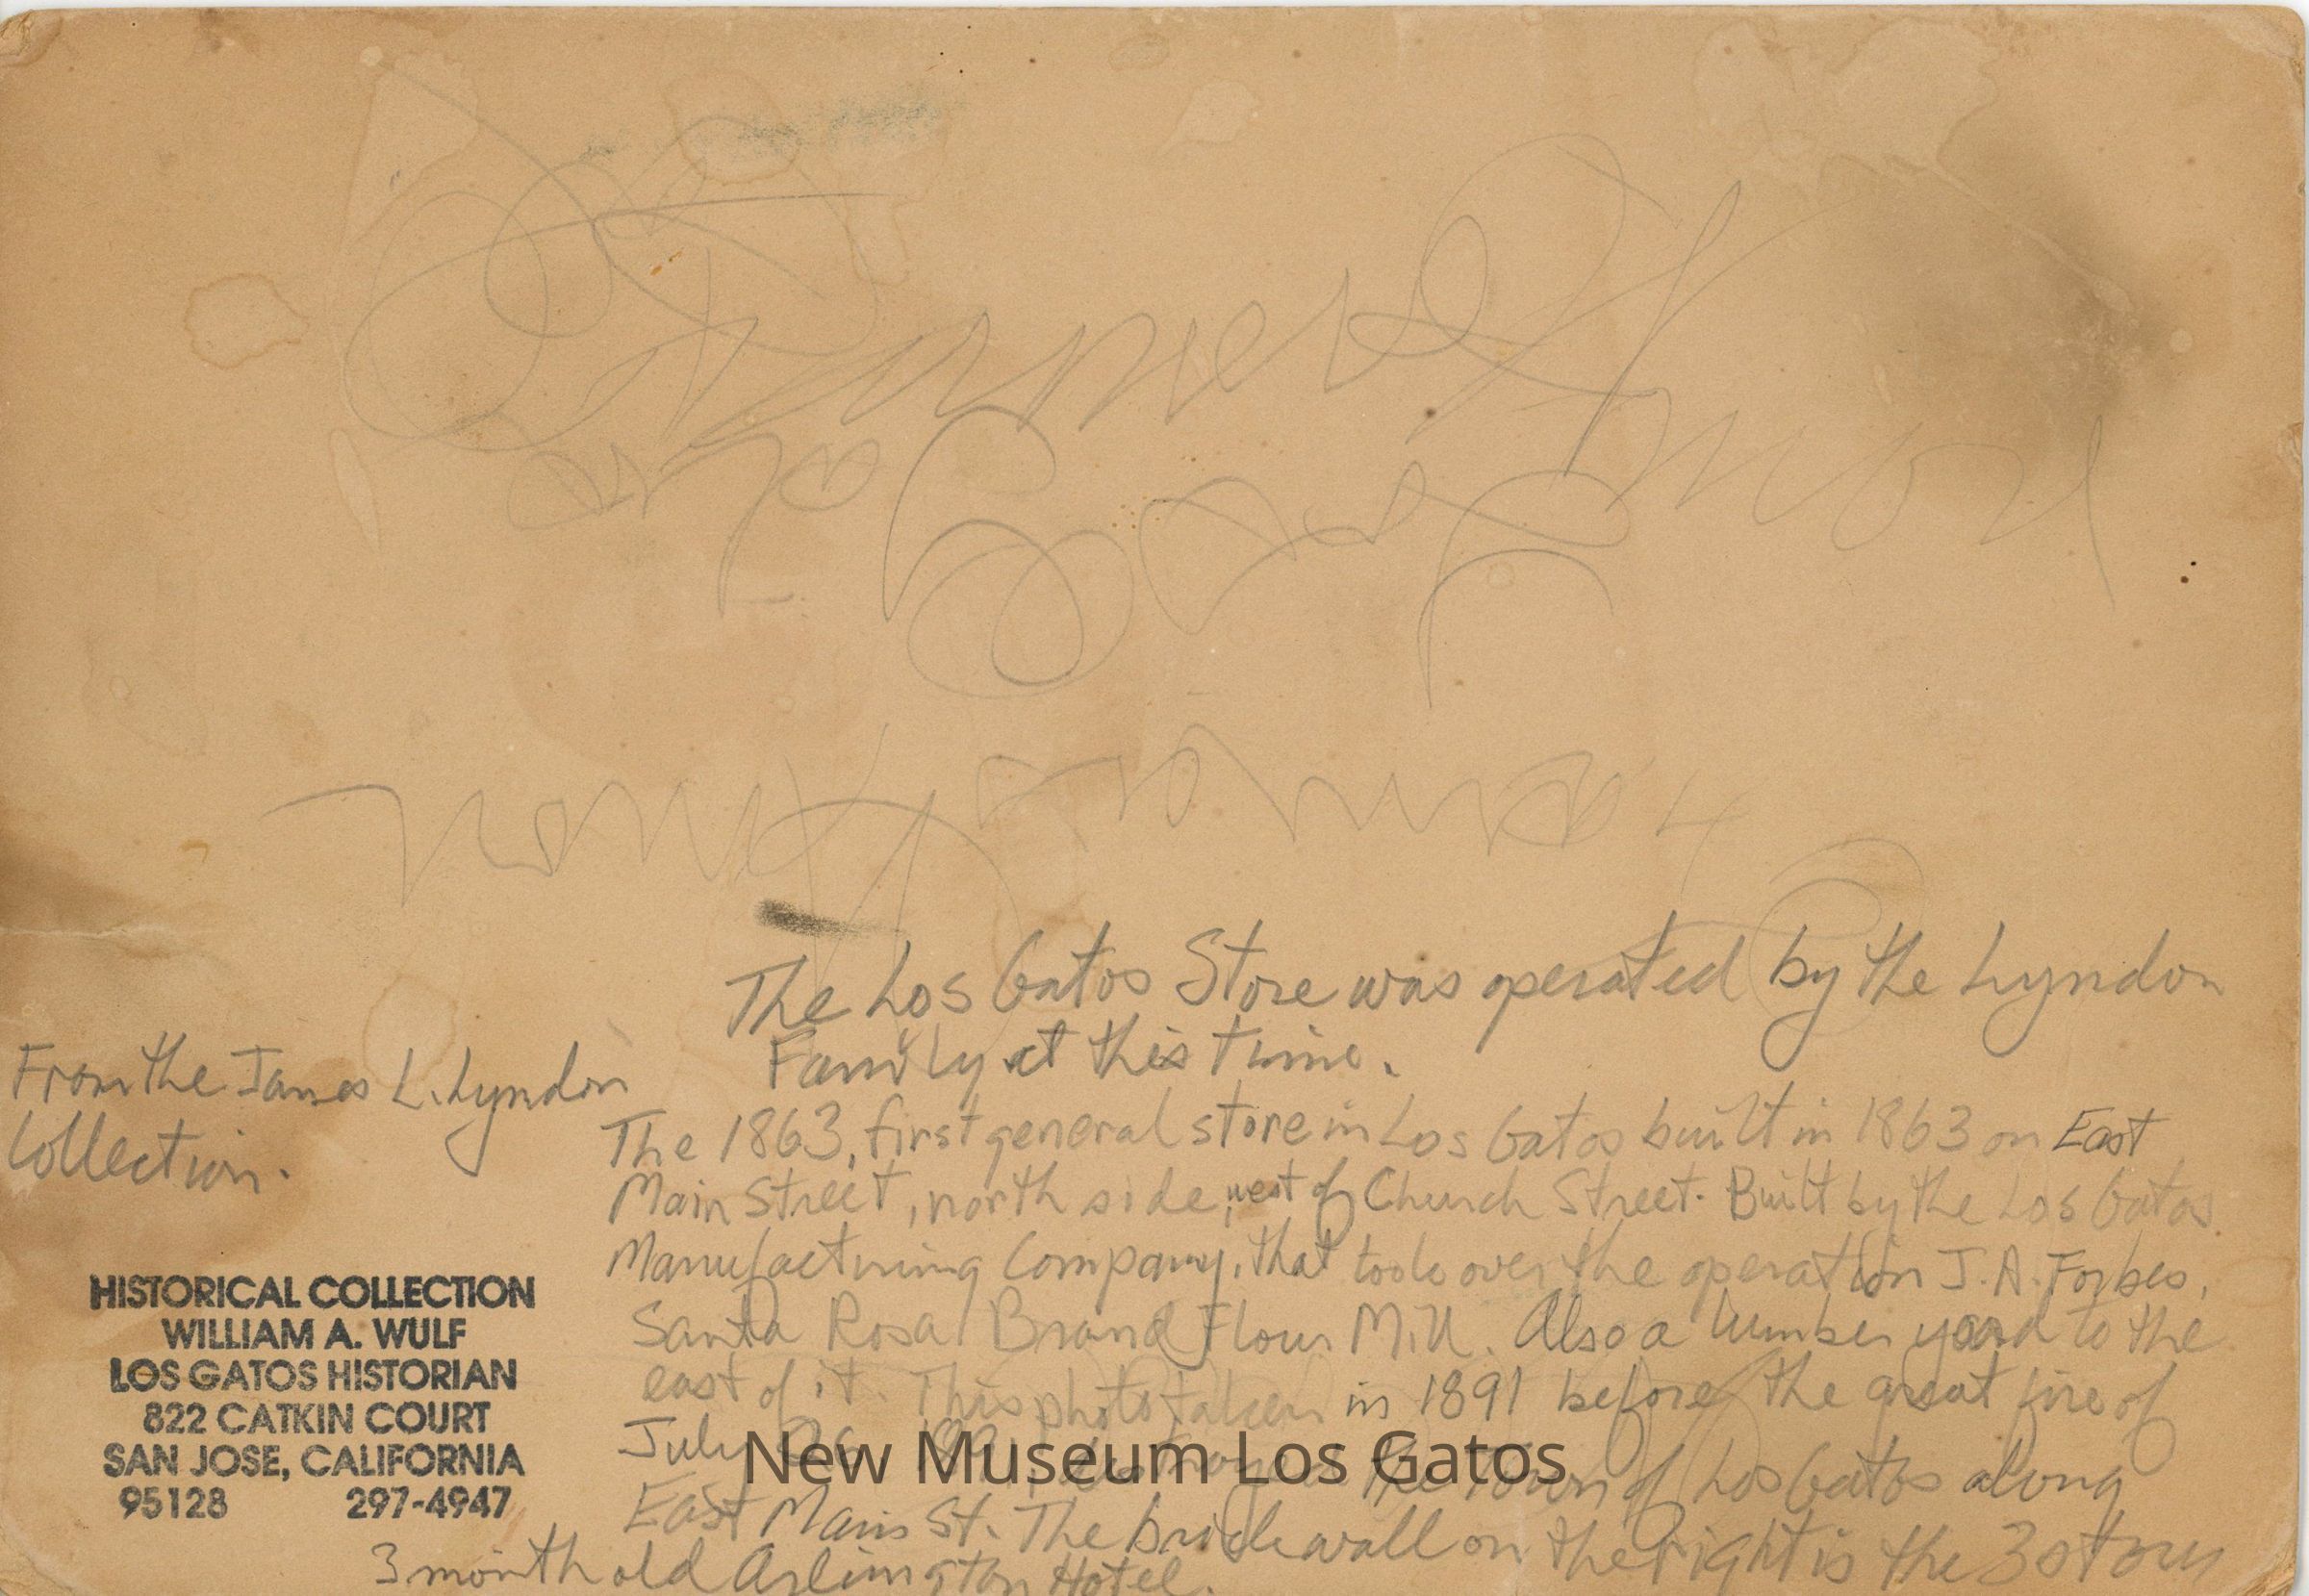 The Los Gatos Store was operated by the Lyndon
Family at this time.
From the James L. Lyndon
Collection.
The 1863, first general store in Los Gatos built in 1863 on East
Main Street, north side, west of Church Street. Built by the Los Gatos
Manufacturing Company, that took over the operation J.A. Forbes,
Santa Rosa Brand Flour Mill. Also a lumber yard to the
east of it. This photo taken in 1891 before the great fire of
July the Town of Los Gatos along
East Main St. The brick wall on the right is the 3 story
3 month old Arlington Hotel.
HISTORICAL COLLECTION
WILLIAM A. WULF
LOS GATOS HISTORIAN
822 CATKIN COURT
SAN JOSE, CALIFORNIA
95128 297-4947
New Museum Los Gatos